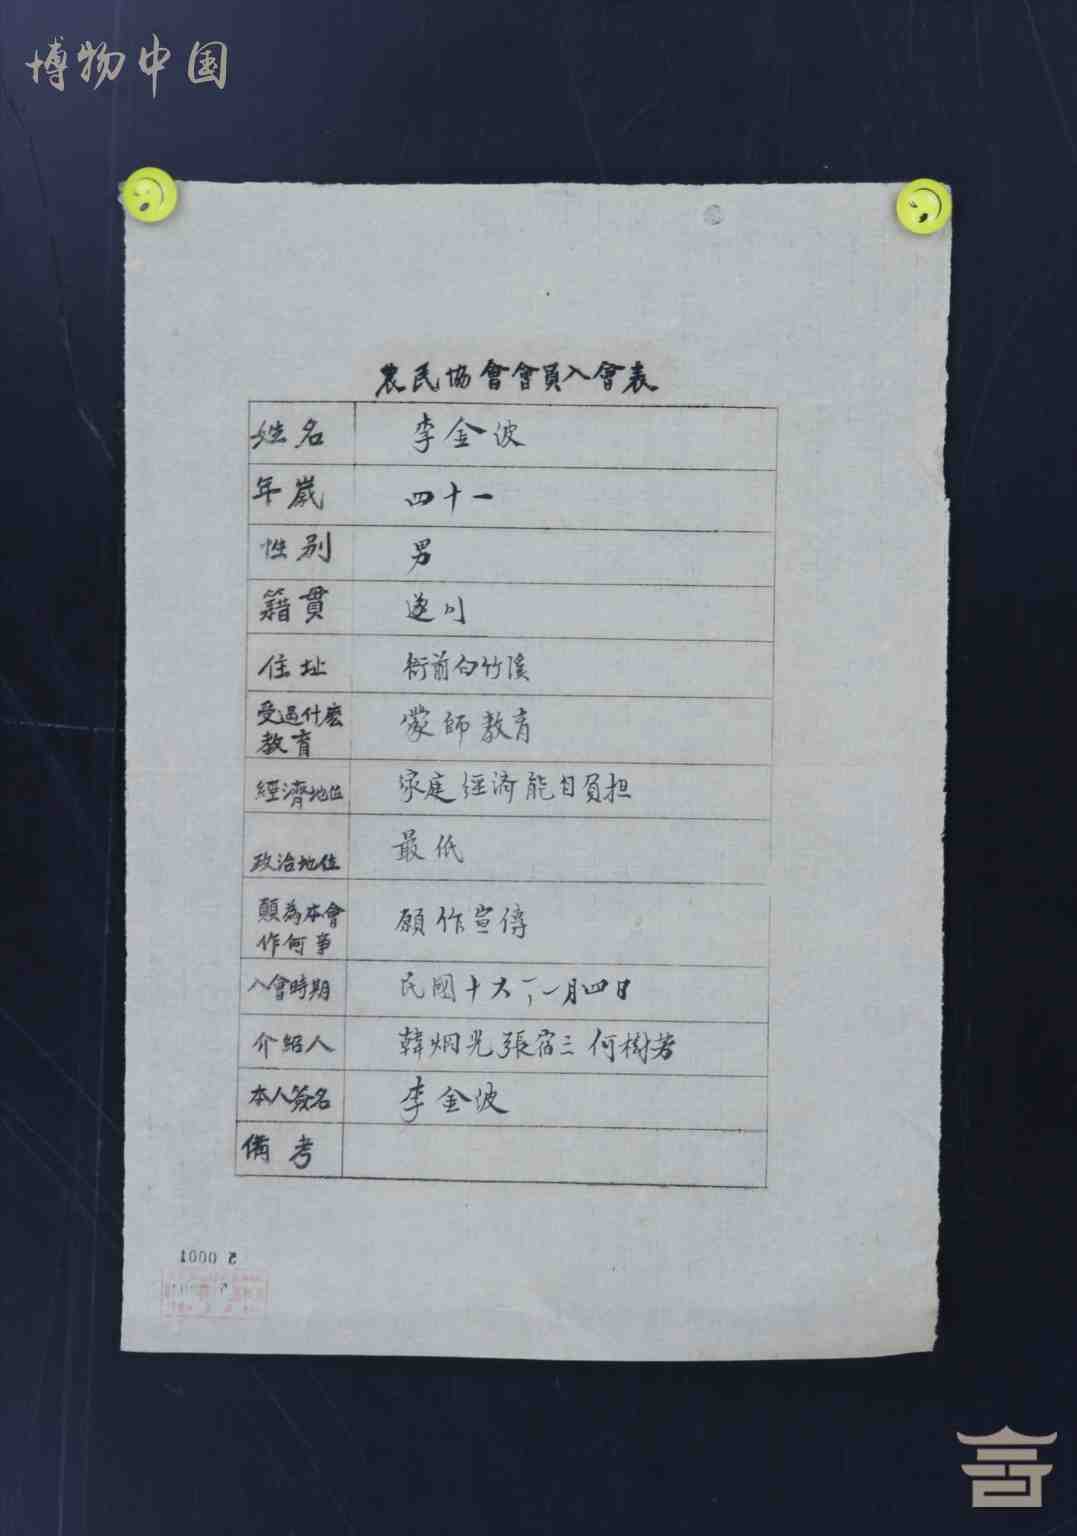 博物中国
農民協會會員入會表
姓名 李金波
年嵗 四十一
性别 男
籍貫 遂川
住址 衙前白竹溪
受過什麽
教育 蒙師教育
經濟地位 家庭經济能自負担
政治地位 最低
願為本會
作何事 願作宣傳
入會時期 民國十六,一月四日
介紹人 韓烱光 張宿三 何樹芳
本人簽名 李金波
備考